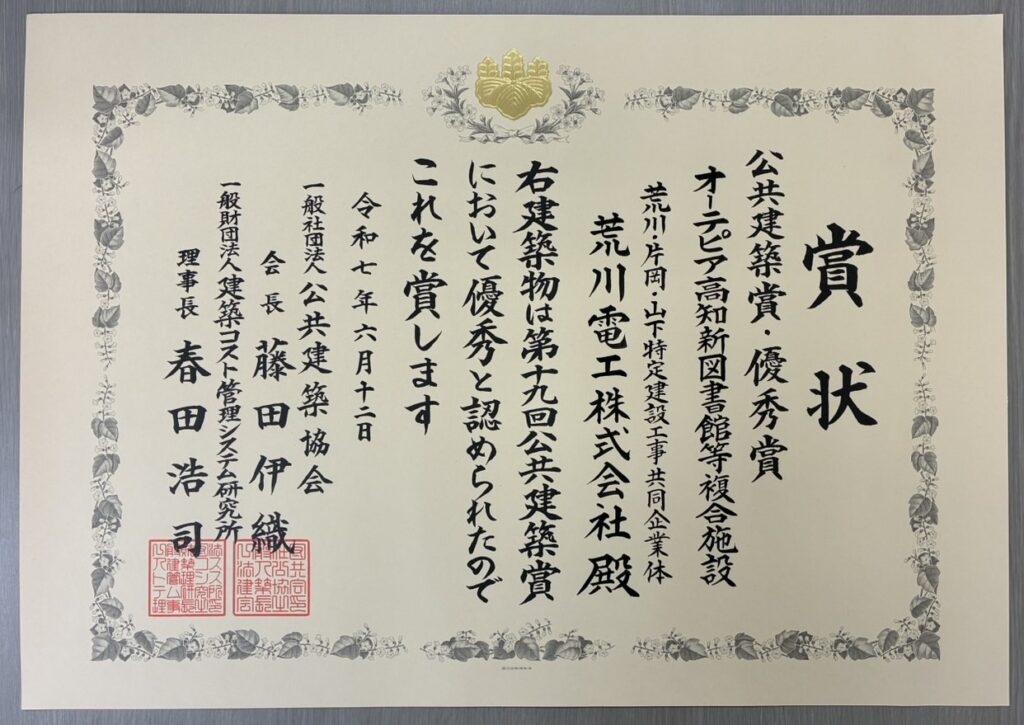 賞状
公共建築賞・優秀賞
オーテピア高知新図書館等複合施設
荒川・片岡・山下特定建設工事共同企業体
荒川電工株式会社殿
右建築物は第十九回公共建築賞
において優秀と認められたので
これを賞します
令和七年六月十二日
一般社団法人公共建築協会
会長 藤田伊織
一般財団法人建築コスト管理システム研究所
理事長 春田浩司